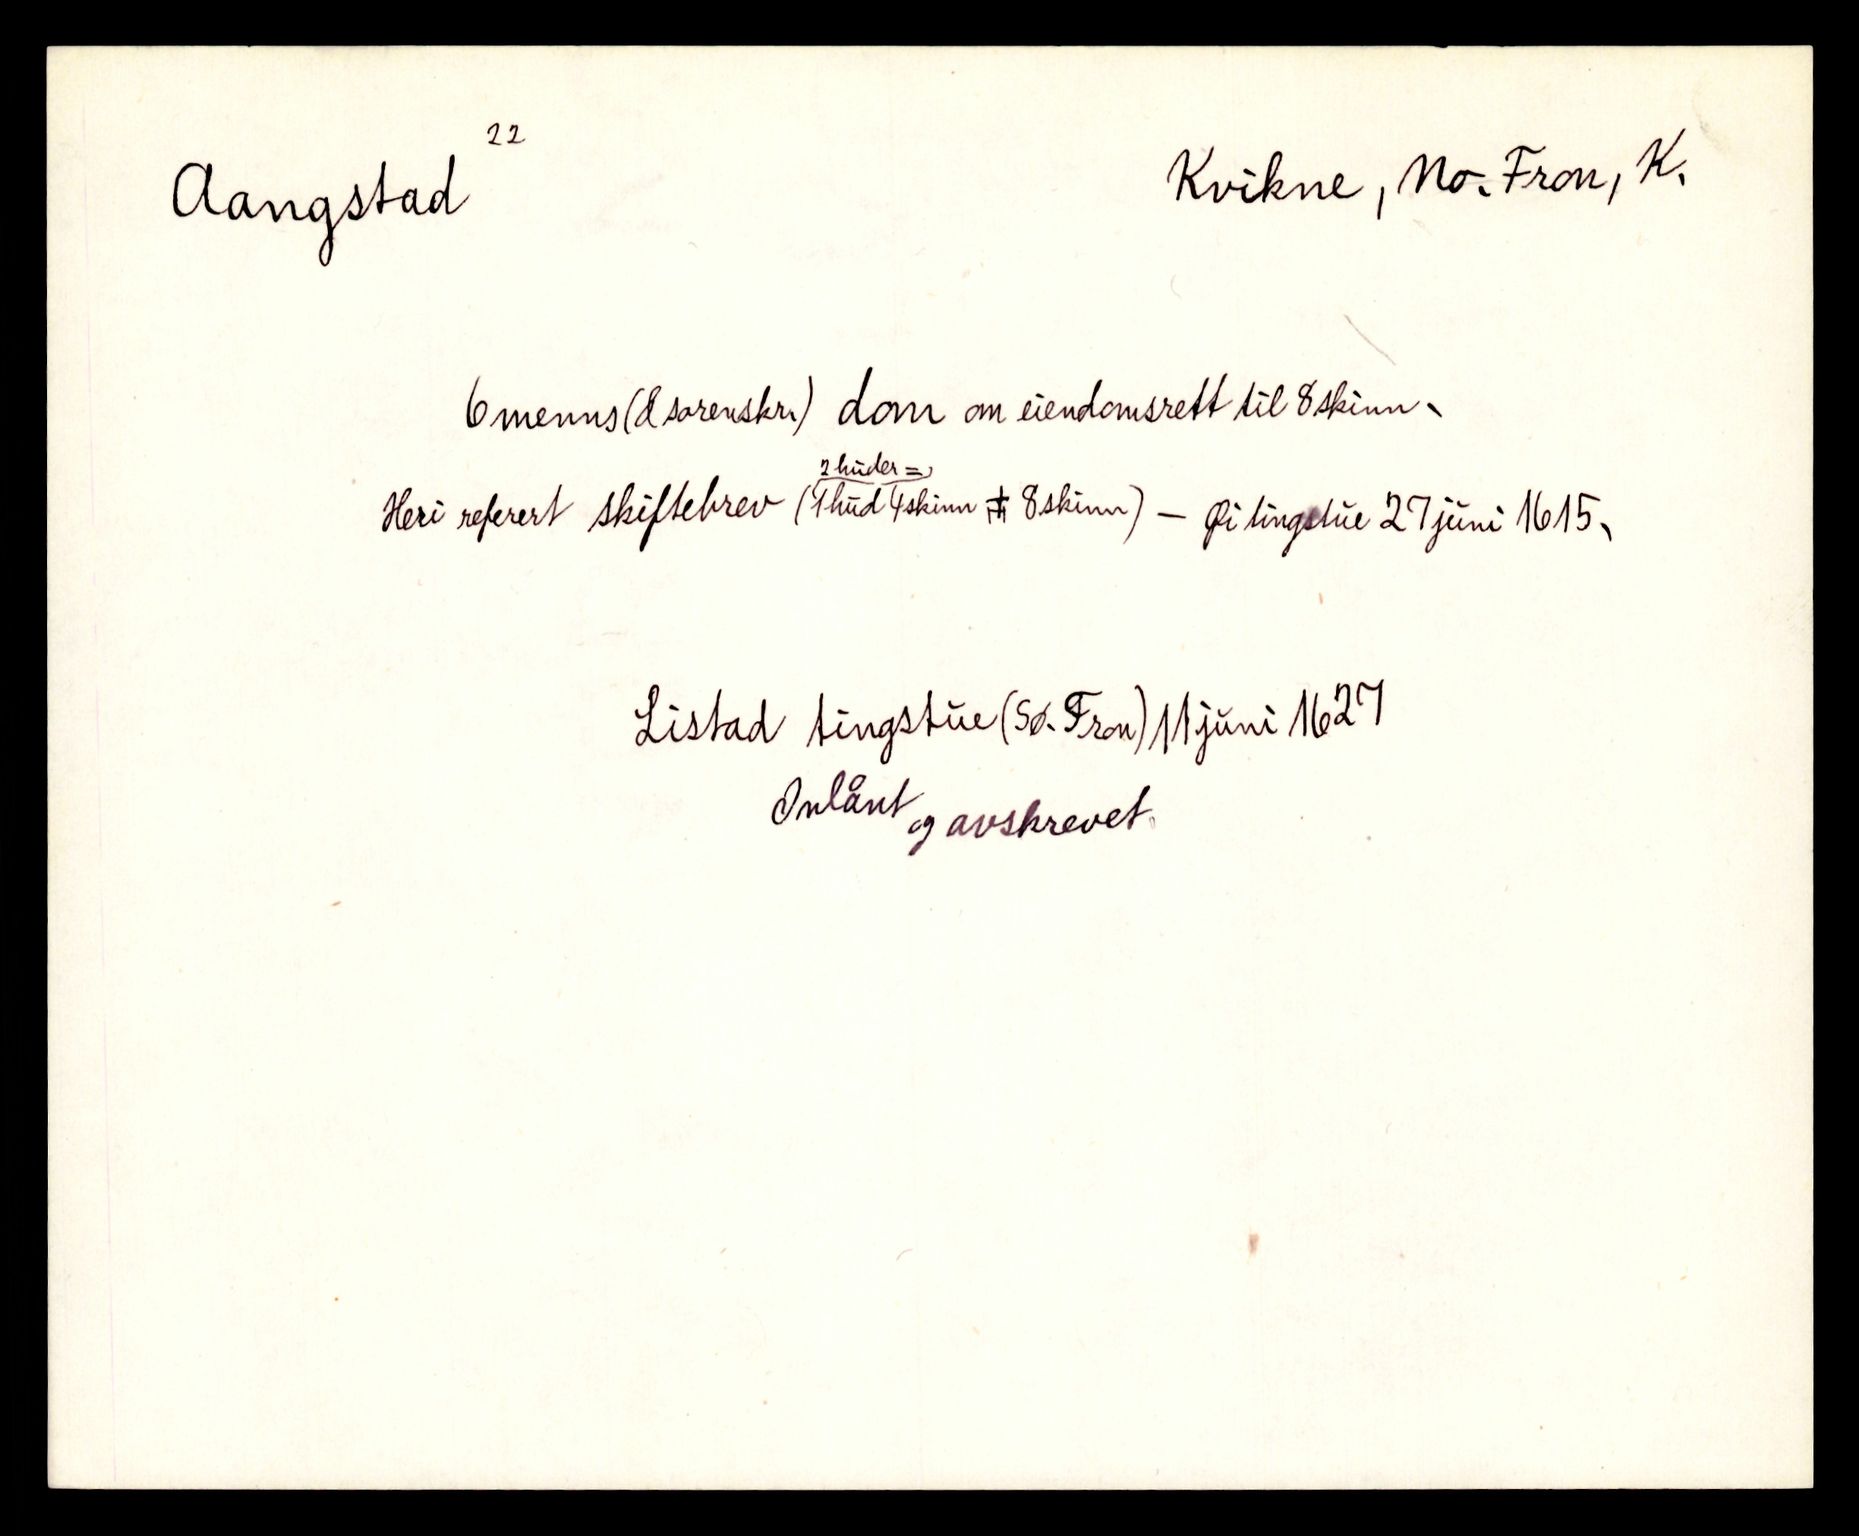 Aangstad 22
Kvikne, No. Fron, K.
6 menns (& sorenskr.) dom om eiendomsrett til 8 skinn.
2 huder =
Heri referert skiftebrev (1 hud 4 skinn + 8 skinn) – Øi tingstue 27 juni 1615.
Listad tingstue (Sø. Fron) 11 juni 1627
Innlånt
og avskrevet.